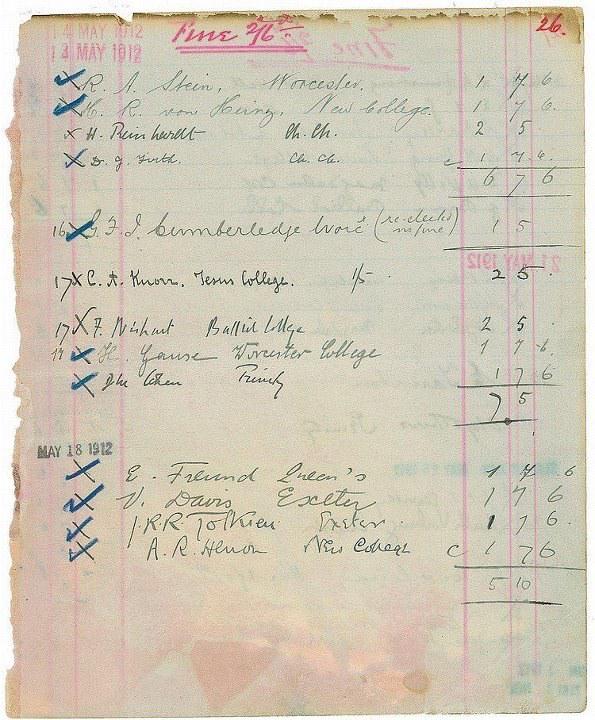 14 MAY 1912
14 MAY 1912 Fine 2/6 26.
R. A. Stein, Worcester. 1 7 6
H. R. von Heinz, New College. 1 7 6
H. Reinhardt Ch. Ch. 2 5
D. J. Ch. Ch. c 1 7 6
6 7 6
16 F. J. Cumberledge Worc (re-elected no fine) 1 5
17 C. A. Knorr, Jesus College. 1/5 2 5
17 F. Balliol College 2 5
17 H. Worcester College 1 7 6
Cohen Trinity 1 7 6
7 5
MAY 18 1912
E. Freund Queen's 1 7 6
V. Davis Exeter 1 7 6
J.R.R Tolkien Exeter 1 7 6
A. R. New College c 1 7 6
5 10
21 MAY 1912